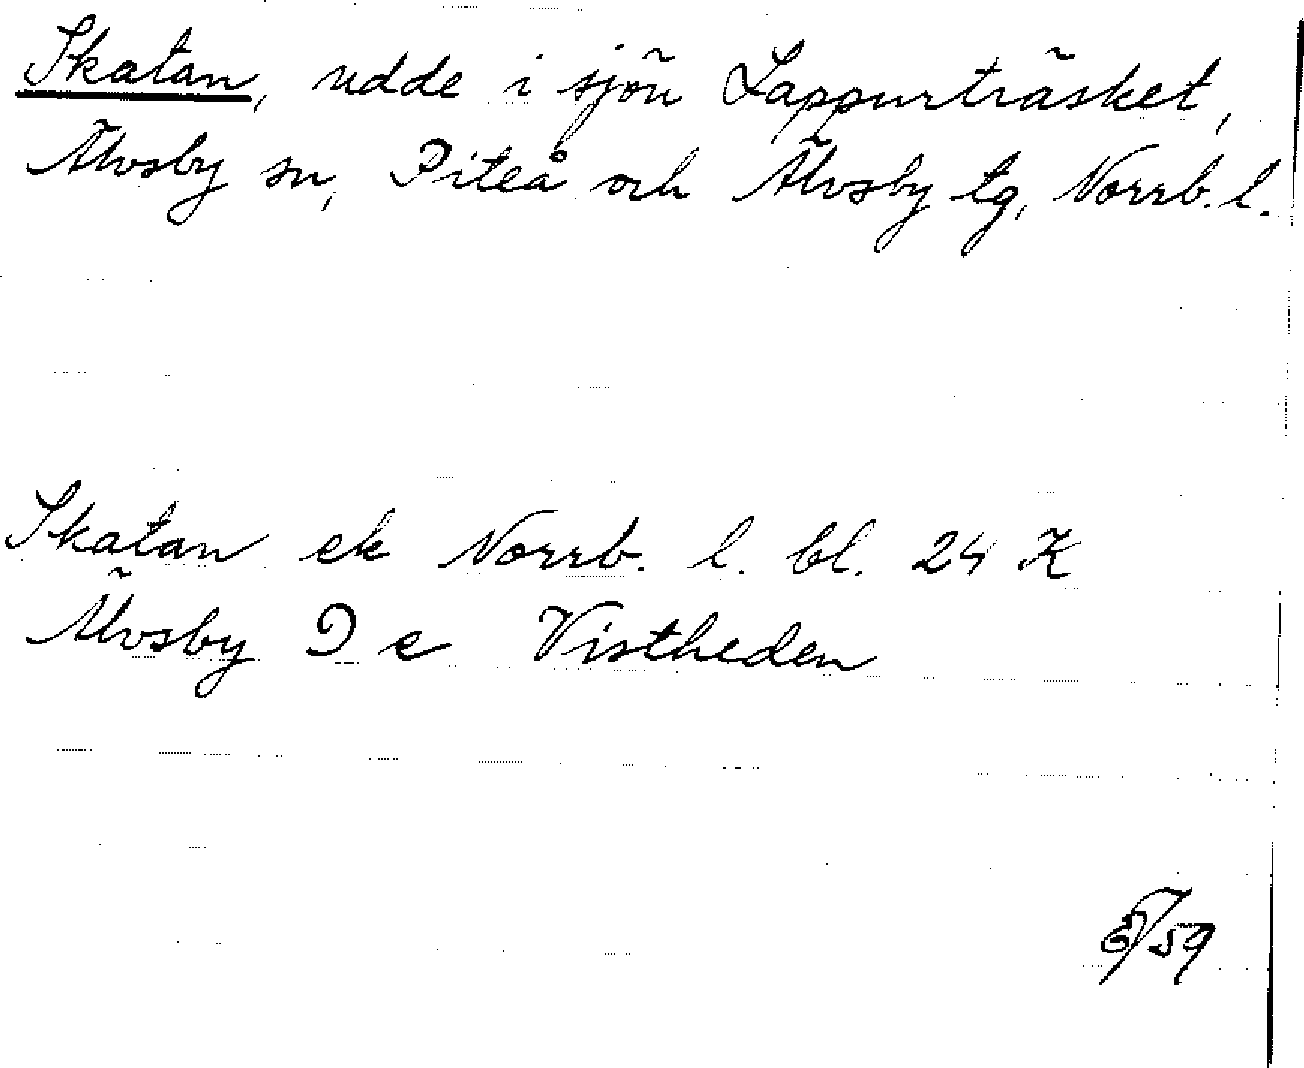 Skatan, udde i sjön Lappurträsket,
Älvsby sn, Piteå och Älvsby tg, Norrb. l.
Skatan ek Norrb. l. bl. 24 K
Älvsby 9 e Vistheden
/59